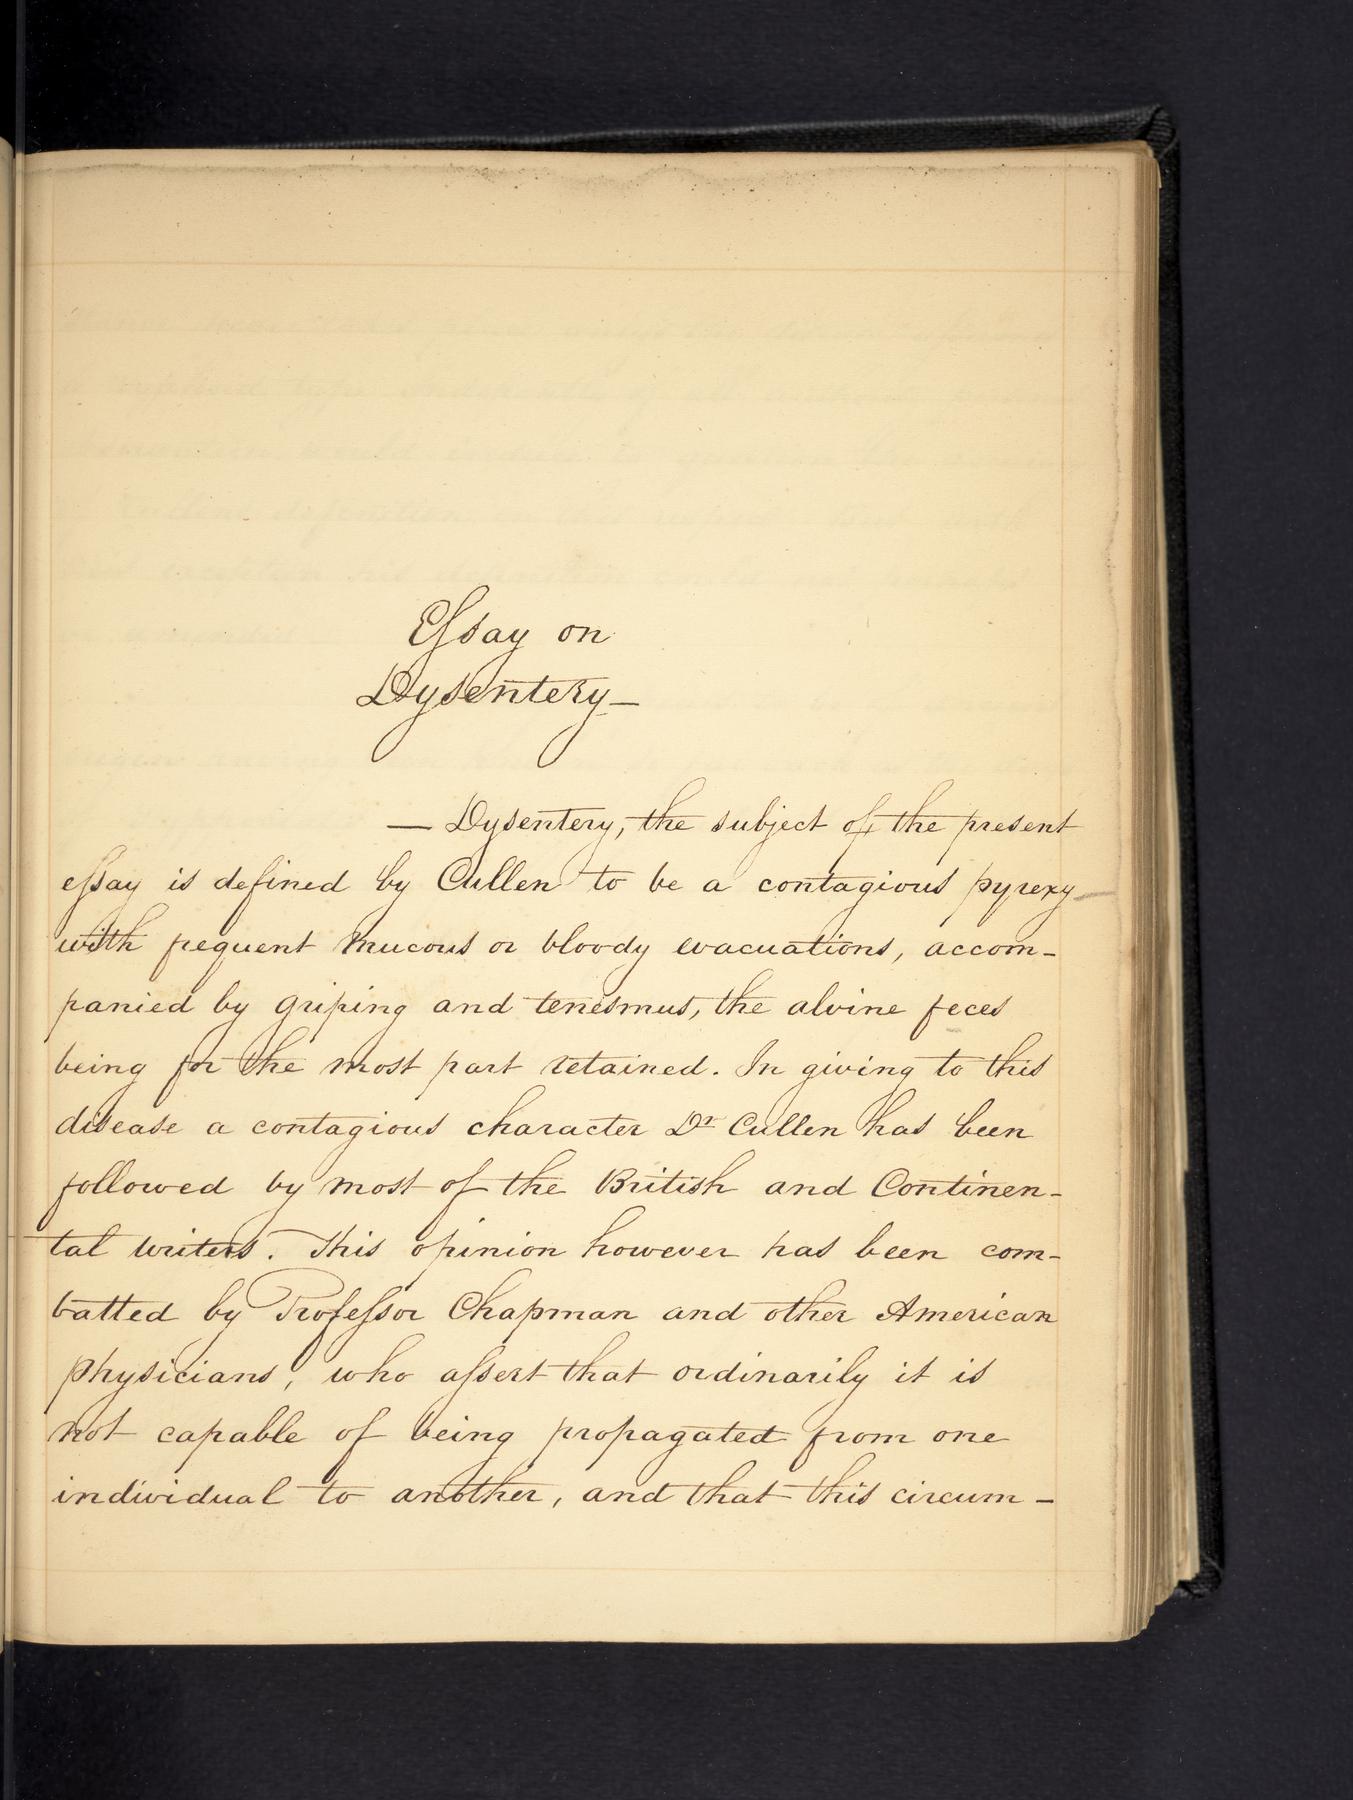 Essay on
Dysentery—
— Dysentery, the subject of the present
essay is defined by Cullen to be a contagious pyrexy
with frequent mucous or bloody evacuations, accom-
panied by griping and tenesmus, the alvine feces
being for the most part retained. In giving to this
disease a contagious character Dr Cullen has been
followed by most of the British and Continen-
tal writers. This opinion however has been com-
batted by Professor Chapman and other American
physicians, who assert that ordinarily it is
not capable of being propagated from one
individual to another, and that this circum-